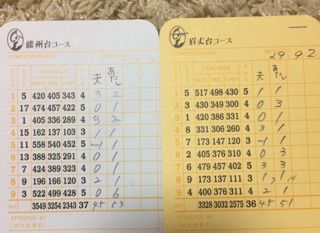 能州台コース
YARDAGE
夫 あたし
1 5 420 405 343 4 3 2
2 17 474 457 422 5 0 1
3 1 405 336 289 4 3 2
4 15 162 137 103 3 1 1
5 11 558 540 452 5 -1 1
6 13 388 325 291 4 0 1
7 7 424 389 323 4 0 1
8 9 196 166 120 3 2 1
9 3 522 499 428 5 0 6
3549 3254 2343 37 45 53
ATTESTED BY
眉丈台コース
29.9.2
YARDAGE
夫 あたし
1 5 517 498 430 5 1 1
2 3 430 349 300 4 0 3
3 401 340 305 4 0 1
4 8 331 306 260 4 3 1
5 3 -1 1
6 4 0 2
7 6 479 457 402 5 3 3
8 3 1
9 4 400 376 311 4 2 1
3328 3032 2575 36 45 51
ATTESTED BY